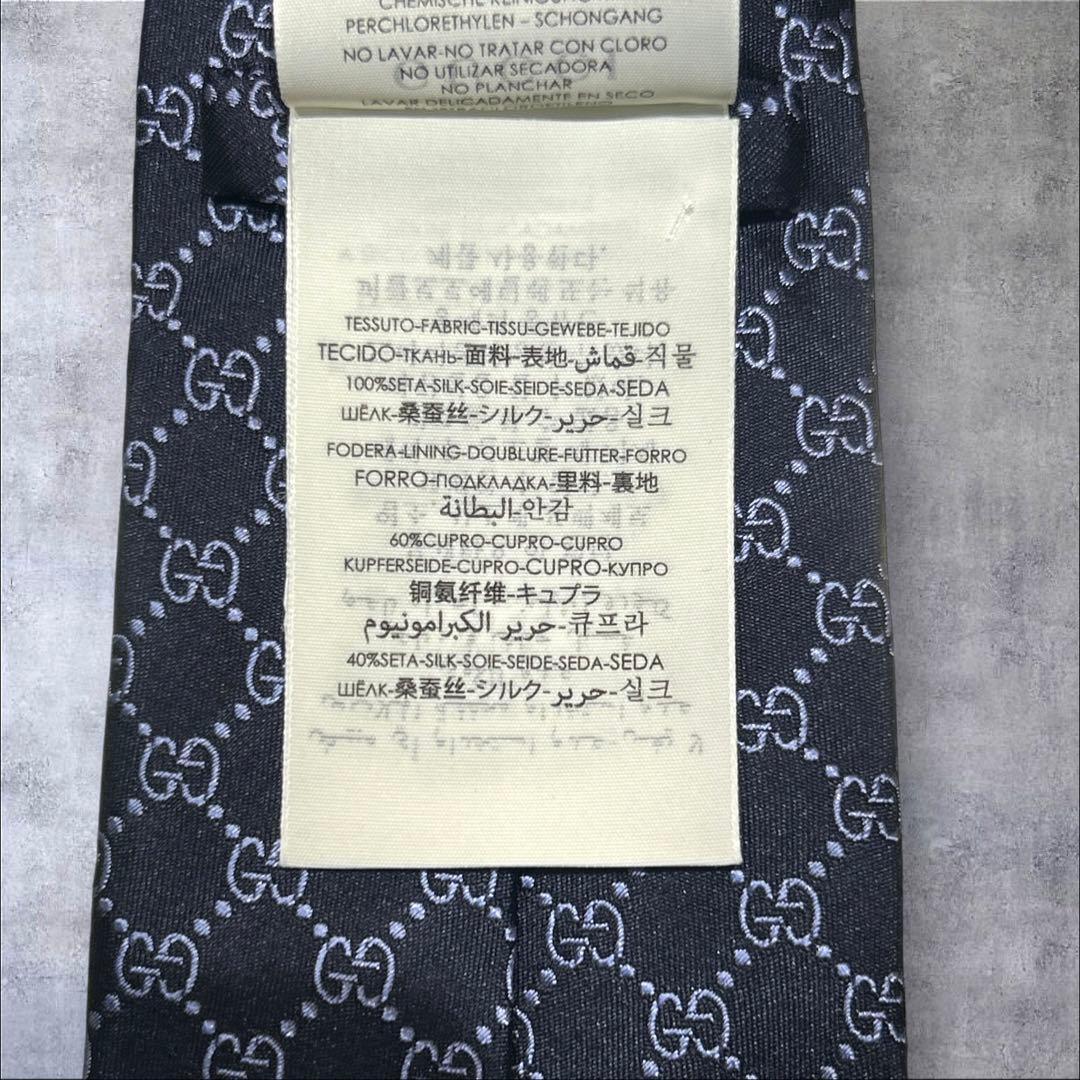 CHEMISCHE REINIGUNG
PERCHLORETHYLEN – SCHONGANG
NO LAVAR-NO TRATAR CON CLORO
NO UTILIZAR SECADORA
NO PLANCHAR
LAVAR DELICADAMENTE EN SECO
TESSUTO-FABRIC-TISSU-GEWEBE-TEJIDO
TECIDO-ТКАНЬ-面料-表地-قماش-직물
100%SETA-SILK-SOIE-SEIDE-SEDA-SEDA
ШЁЛК-桑蚕丝-シルク-حرير-실크
FODERA-LINING-DOUBLURE-FUTTER-FORRO
FORRO-ПОДКЛАДКА-里料-裏地
البطانة-안감
60%CUPRO-CUPRO-CUPRO
KUPFERSEIDE-CUPRO-CUPRO-КУПРО
铜氨纤维-キュプラ
حرير الكبرامونيوم-큐프라
40%SETA-SILK-SOIE-SEIDE-SEDA-SEDA
ШЁЛК-桑蚕丝-シルク-حرير-실크